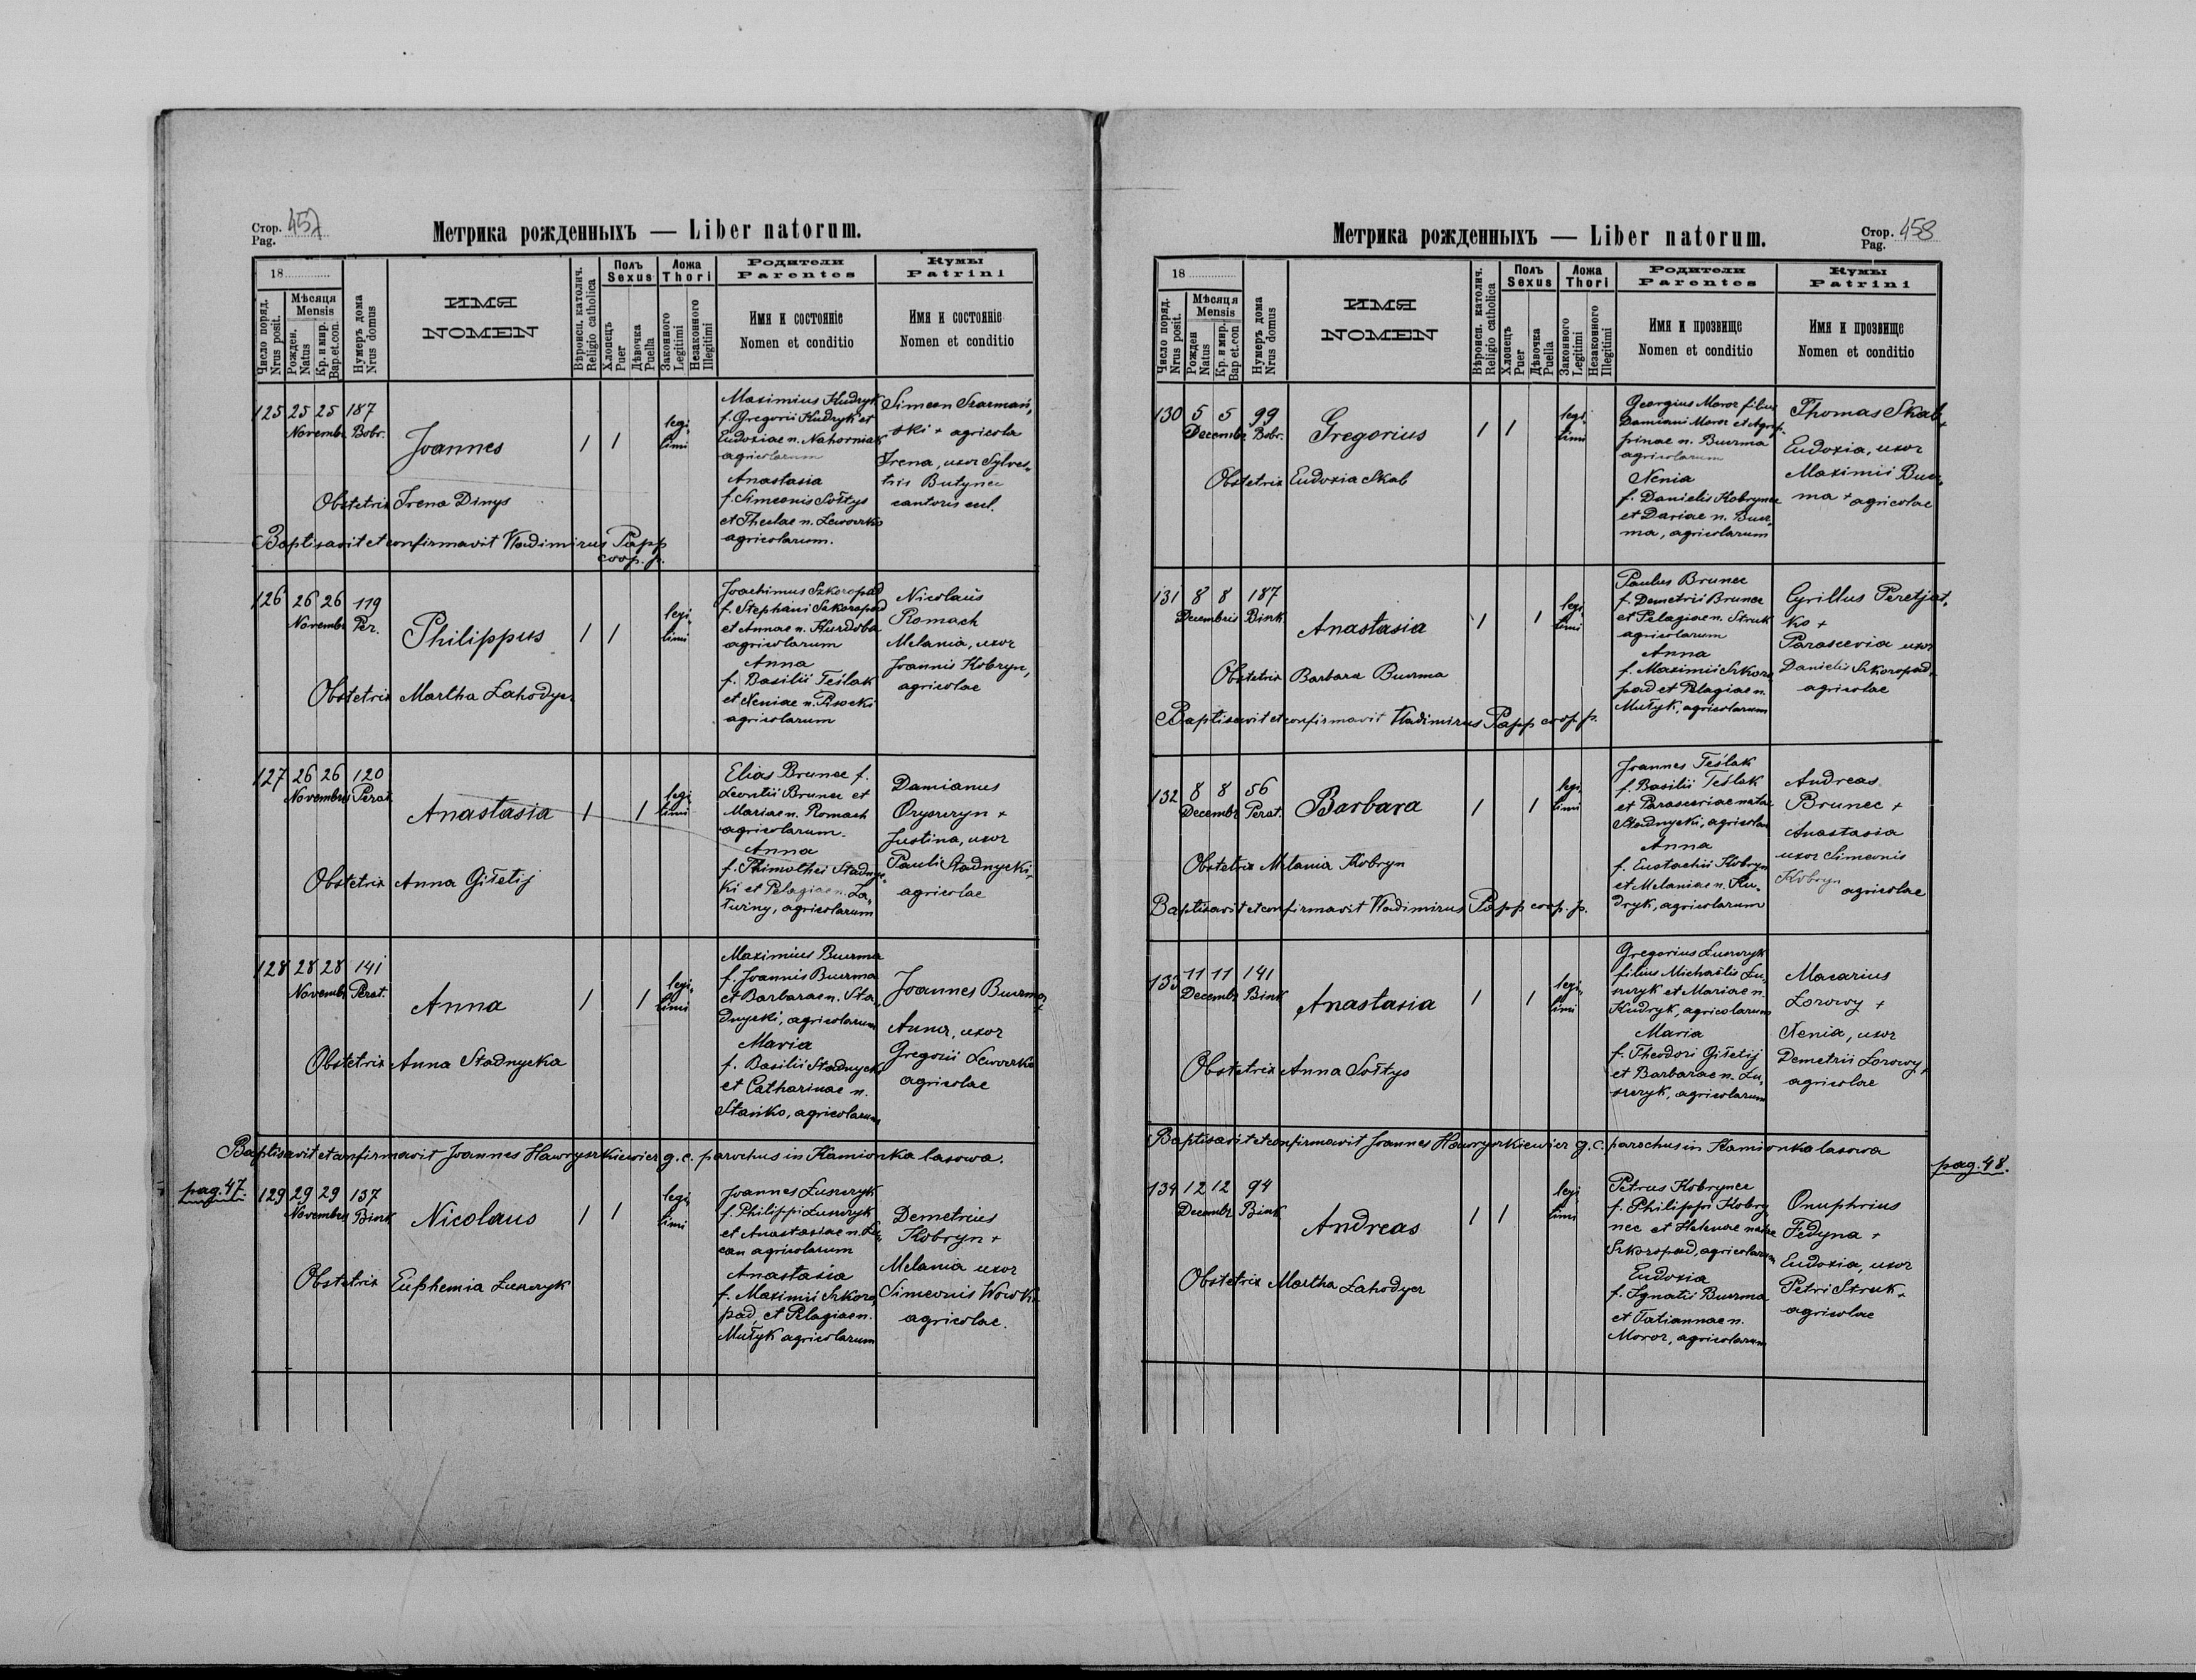 Стор. 457
Pag.
Метрика рожденныхъ — Liber natorum.
18
Число поряд. Nrus posit.
Мѣсяця Mensis
Рожден. Natus
Кр. и мир. Bap. et. con.
Нумеръ дома Nrus domus
ИМЯ
NOMEN
Вѣроисп. католич. Religio catholica
Полъ Sexus
Хлопецъ Puer
Дѣвочка Puella
Ложа Thori
Законного Legitimi
Незаконного Illegitimi
Родители
Parentes
Имя и состоянie
Nomen et conditio
Кумы
Patrini
Имя и состоянie
Nomen et conditio
125 25 25 187
Novembr. Bobr.
Joannes
1 1
legi-
timi
Maximius Kudryk
f. Gregorii Kudryk et
Eudoxiae n. Nahorniak
agricolarum
Anastasia
f. Simeonis Sołtys
et Theclae n. Lewovrko
agricolarum.
Simeon Szarmań,
ski + agricola
Irena, uxor Sylves-
tris Butynec
cantoris eccl.
Obstetrix Irena Dinys
Baptisavit et confirmavit Wladimirus Papp
coop. p.
126 26 26 119
Novembr. Per.
Philippus
1 1
legi
timi
Joachimus Szkoropad
f. Stephani Szkoropad
et Annae n. Kurdoba
agricolarum
Anna
f. Basilii Teślak
et Xeniae n. Pisocki
agricolarum
Nicolaus
Romach
Melania, uxor
Joannis Kobryn,
agricolae
Obstetrix Martha Lahodyn
127 26 26 120
Novembris Perat.
Anastasia
1 1
legi
timi
Elias Brunec f.
Leontii Brunec et
Mariae n. Romach
agricolarum.
Anna
f. Thimothei Stadnyc-
ki et Pelagiae n. La-
twiny, agricolarum
Damianus
Oryszczyn +
Justina, uxor
Pauli Stadnycki +
agricolae
Obstetrix Anna Giłetij
128 28 28 141
Novembr. Perat.
Anna
1 1
legi-
timi
Maximius Buczma
f. Joannis Buczma
et Barbarae n. Sta-
dnycki, agricolarum
Maria
f. Basilii Stadnycki
et Catharinae n.
Stańko, agricolarum
Joannes Buczma +
Anna, uxor
Gregorii Lewovrko
agricolae
Obstetrix Anna Stadnycka
Baptisavit et confirmavit Joannes Hawryszkiewicz g. c. parochus in Kamionka lasowa.
pag. 47.
129 29 29 137
Novembris Bink
Nicolaus
1 1
legi-
timi
Joannes Łuszczyk
f. Philippi Łuszczyk
et Anastasiae n.
can agricolarum
Anastasia
f. Maximii Szkoro-
pad, et Pelagiae n.
Mułyk agricolarum
Demetrius
Kobryn +
Melania uxor
Simeonis Wowk +
agricolae.
Obstetrix Euphemia Łuszczyk
Метрика рожденныхъ — Liber natorum.
Стор. 458
Pag.
18
Число поряд. Nrus posit.
Мѣсяця Mensis
Рожден Natus
Кр. и мир. Bap et. con
Нумеръ дома Nrus domus
ИМЯ
NOMEN
Вѣроисп. католич. Religio catholica
Полъ Sexus
Хлопецъ Puer
Дѣвочка Puella
Ложа Thori
Законного Legitimi
Незаконного Illegitimi
Родители
Parentes
Имя и прозвище
Nomen et conditio
Кумы
Patrini
Имя и прозвище
Nomen et conditio
130 5 5 99
Decembr Bobr.
Gregorius
1 1
legi
timi
Georgius Moroz filius
Damiani Moroz et Agrip-
pinae n. Buczma
agricolarum
Xenia
f. Danielis Kobrynec
et Dariae n. Bucz-
ma, agricolarum
Thomas Skab +
Eudoxia, uxor
Maximii Bucz-
ma + agricolae
Obstetrix Eudoxia Skab
131 8 8 187
Decembris Bink
Anastasia
1 1
legi
timi
Paulus Brunec
f. Demetrii Brunec
et Pelagiae n. Struk
agricolarum
Anna
f. Maximii Szkoro-
pad et Pelagiae n.
Mułyk, agricolarum
Cyrillus Peretjat-
ko +
Parascevia uxor
Danielis Szkoropad,
agricolae
Obstetrix Barbara Buczma
Baptisavit et confirmavit Wladimirus Papp coop. p.
132 8 8 56
Decembr Perat.
Barbara
1 1
legi
timi
Joannes Teślak
f. Basilii Teślak
et Parasceviae natae
Stadnycki, agricolarum
Anna
f. Eustachii Kobryn
et Melaniae n. Ku-
dryk, agricolarum
Andreas
Brunec +
Anastasia
uxor Simeonis
Kobryn
agricolae
Obstetrix Melania Kobryn
Baptisavit et confirmavit Wladimirus Papp coop. p.
133 11 11 141
Decembr Bink
Anastasia
1 1
legi-
timi
Gregorius Łuszczyk
filius Michaëlis Łu-
szczyk et Mariae n.
Kudryk, agricolarum
Maria
f. Theodori Giłetij
et Barbarae n. Łu-
szczyk, agricolarum
Macarius
Łozowy +
Xenia, uxor
Demetrii Łozowy +
agricolae
Obstetrix Anna Sołtys
Baptisavit et confirmavit Joannes Hawryszkiewicz g. c. parochus in Kamionka lasowa
pag. 48.
134 12 12 94
Decembr Bink
Andreas
1 1
legi
timi
Petrus Kobrynec
f. Philippi Kobry-
nec et Helenae natae
Szkoropad, agricolarum
Eudoxia
f. Ignatii Buczma
et Tatiannae n.
Moroz, agricolarum
Onuphrius
Fedyna +
Eudoxia, uxor
Petri Struk +
agricolae
Obstetrix Martha Lahodyn